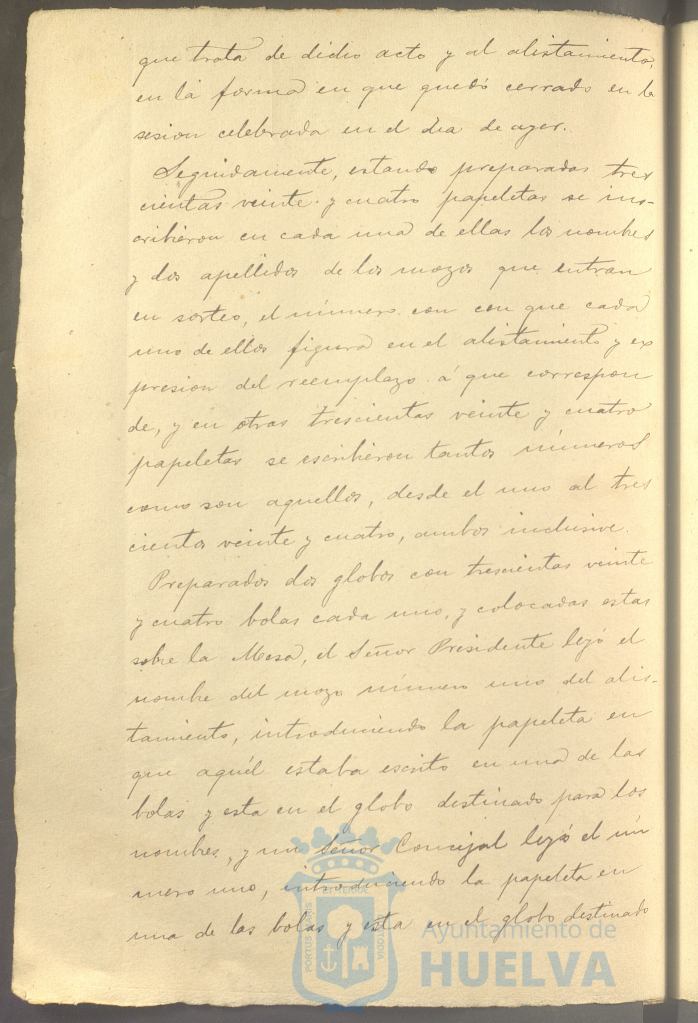 que trata de dicho acto y al alistamiento,
en la forma en que quedó cerrado en la
sesion celebrada en el dia de ayer.
Seguidamente, estando preparadas tres
cientas veinte y cuatro papeletas se ins-
cribieron en cada una de ellas los nombres
y dos apellidos de los mozos que entran
en sorteo, el número con con que cada
uno de ellos figura en el alistamiento y ex
presion del reemplazo á que correspon
de, y en otras trescientas veinte y cuatro
papeletas se escribieron tantos números
como son aquellos, desde el uno al tres
cientos veinte y cuatro, ambos inclusive.
Preparados dos globos con trescientas veinte
y cuatro bolas cada uno, y colocadas estas
sobre la Mesa, el Señor Presidente leyó el
nombre del mozo número uno del alis-
tamiento, introduciendo la papeleta en
que aquél estaba escrito en una de las
bolas y esta en el globo destinado para los
nombres, y un Señor Concejal leyó el nú
mero uno, introduciendo la papeleta en
una de las bolas y esta en el globo destinado
PORTUS MARIS
CUSTODIA
Ayuntamiento de
HUELVA